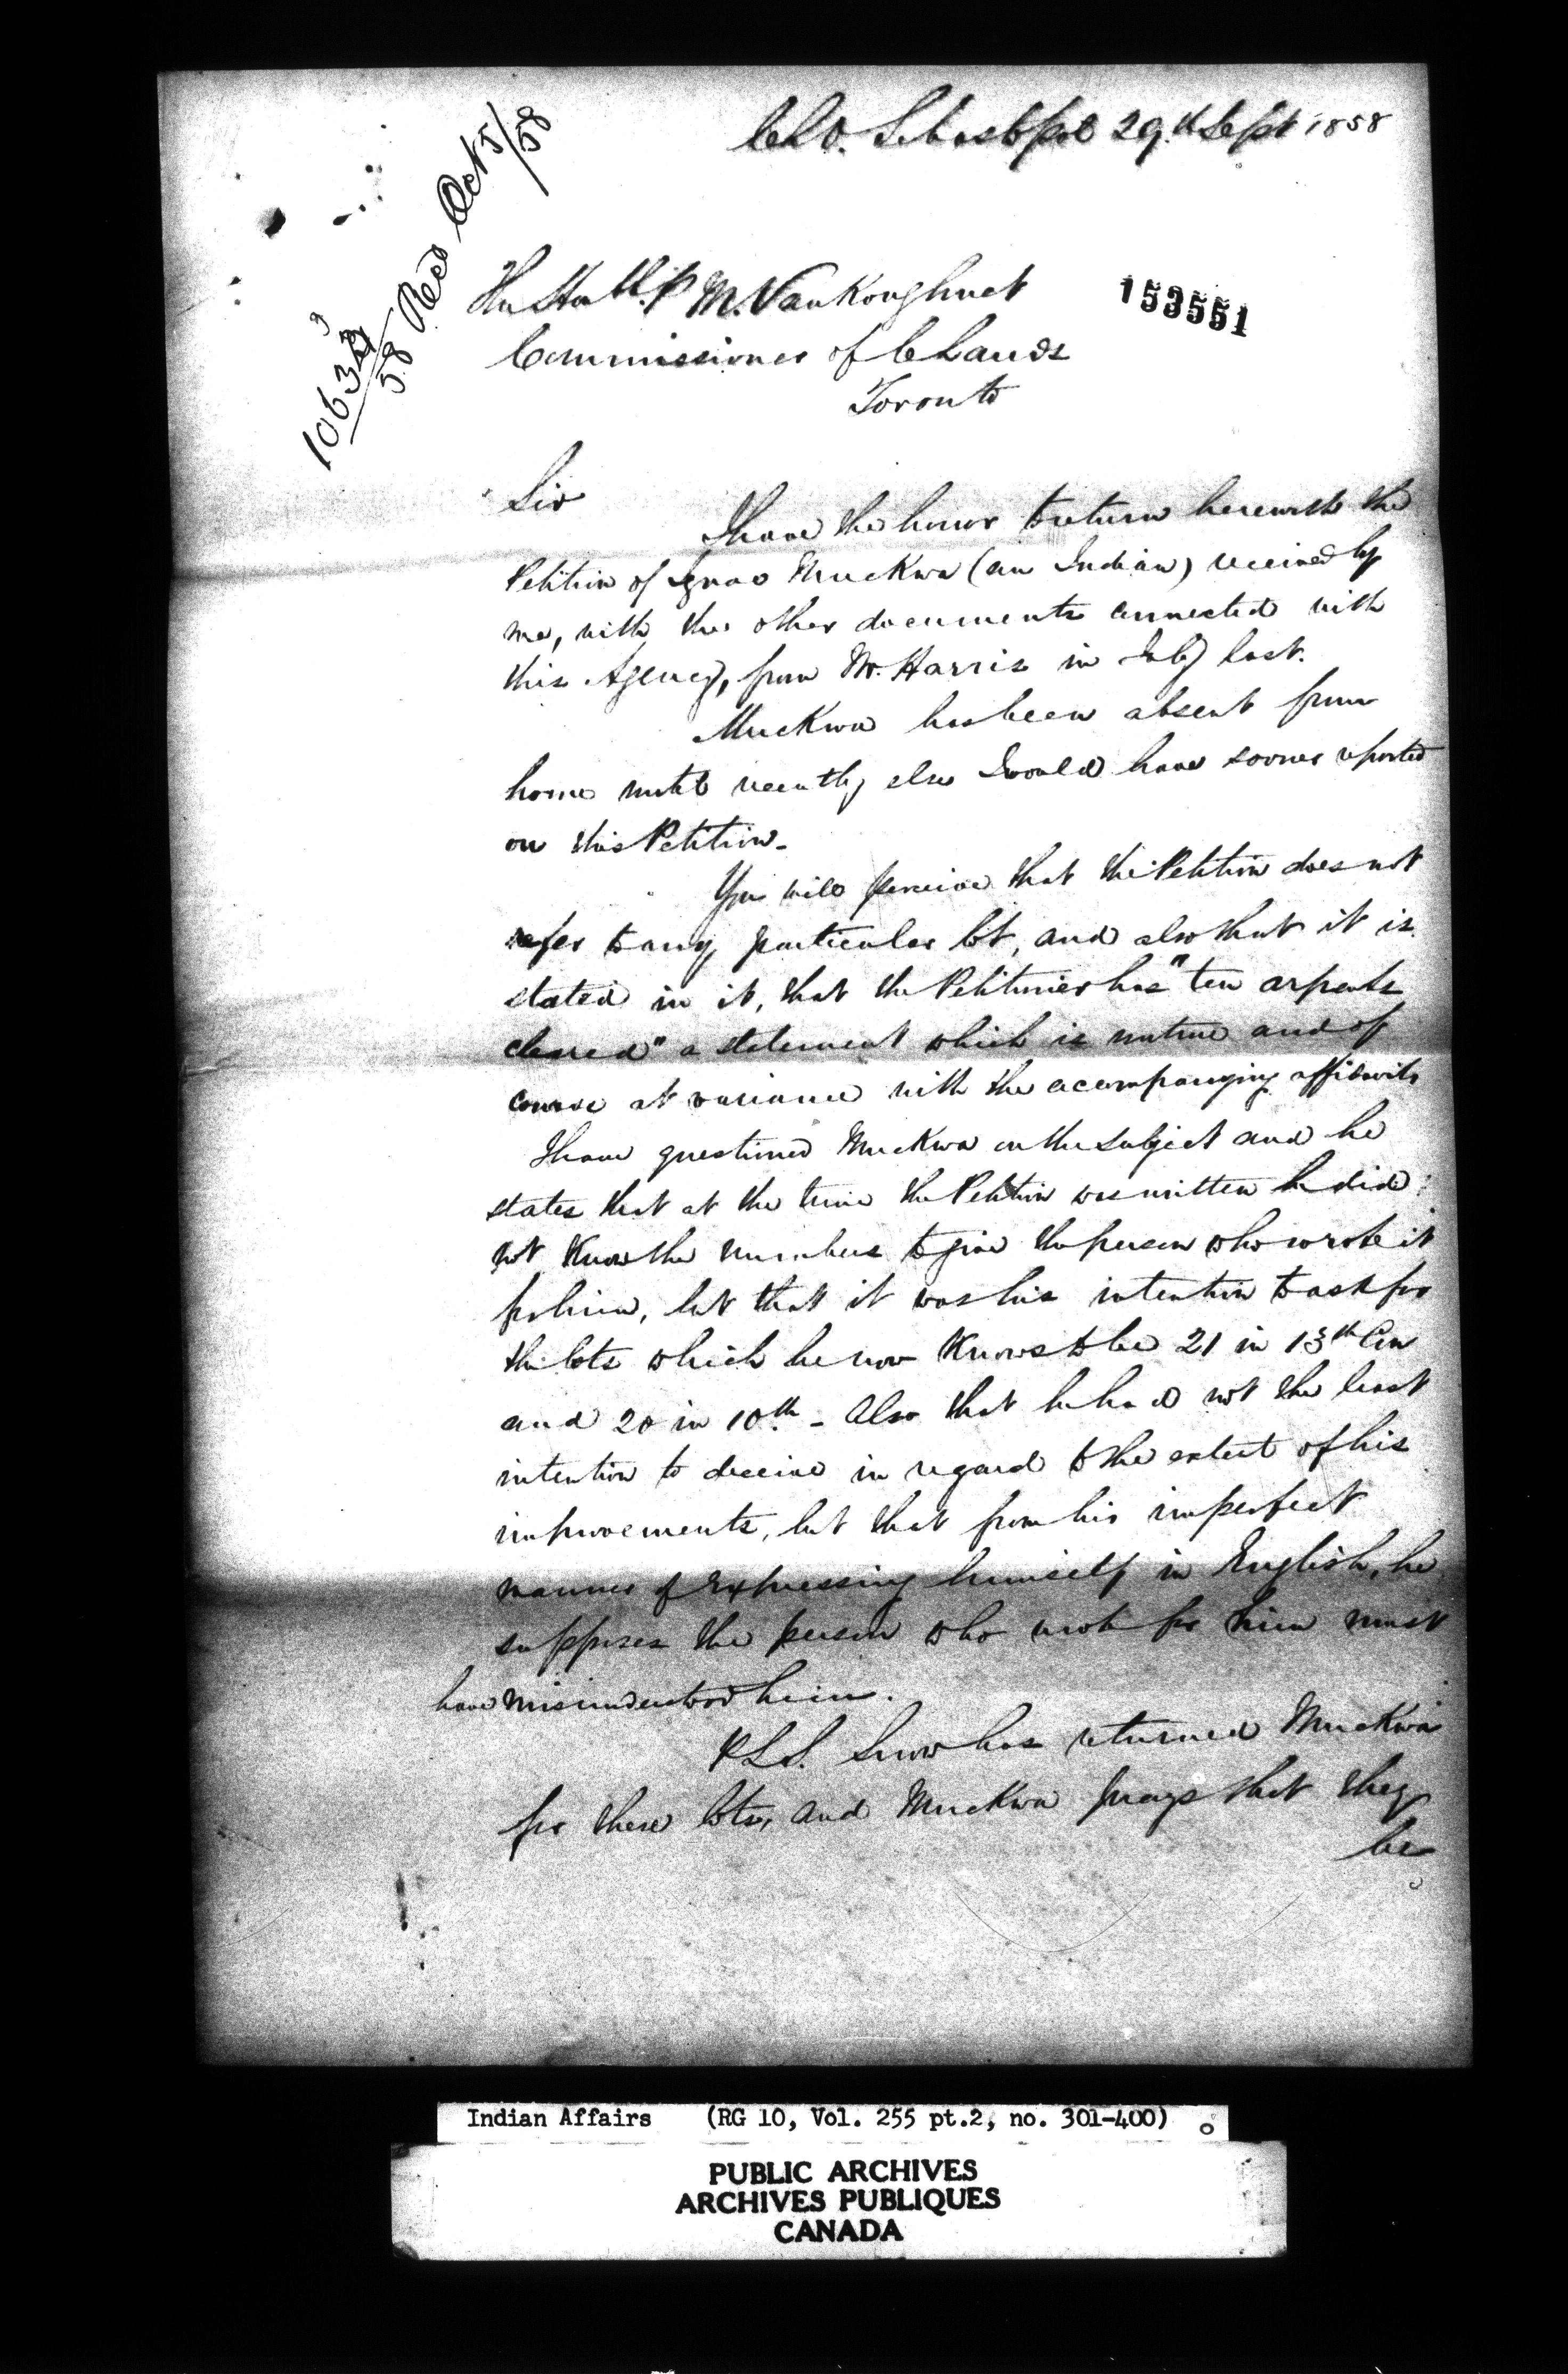 C L O. Sebastopol 29th Sept 1858
10632
58 Recd Oct 5/58
The Honble P M. VanKoughnet
153551
Commissioner of C Lands
Toronto
Sir
I have the honor to return herewith the
Petition of Muckwa (an Indian) received by
me, with the other documents connected with
this Agency, from Mr. Harris in July last.
Muckwa has been absent from
home until recently, else I would have sooner reported
on this Petition.
You will perceive that the Petition does not
refer to any particular lot, and also that it is
stated in it, that the Petitioner has "ten arpents
cleared" a statement which is untrue and of
course at variance with the accompanying affidavits
I have questioned Muckwa on the subject and he
states that at the time the Petition was written he did
not know the numbers to give the person who wrote it
for him, but that it was his intention to ask for
the lots which he now knows to be 21 in 13th Con
and 20 in 10th. - Also that he had not the least
intention to deceive in regard to the extent of his
improvements, but that from his imperfect
manner of expressing himself in English, he
supposes the person who wrote for him must
have misunderstood him.
P.L.S. Snow has returned Muckwa
for these lots, and Muckwa prays that they
be
Indian Affairs (RG 10, Vol. 255 pt.2, no. 301-400)
PUBLIC ARCHIVES
ARCHIVES PUBLIQUES
CANADA